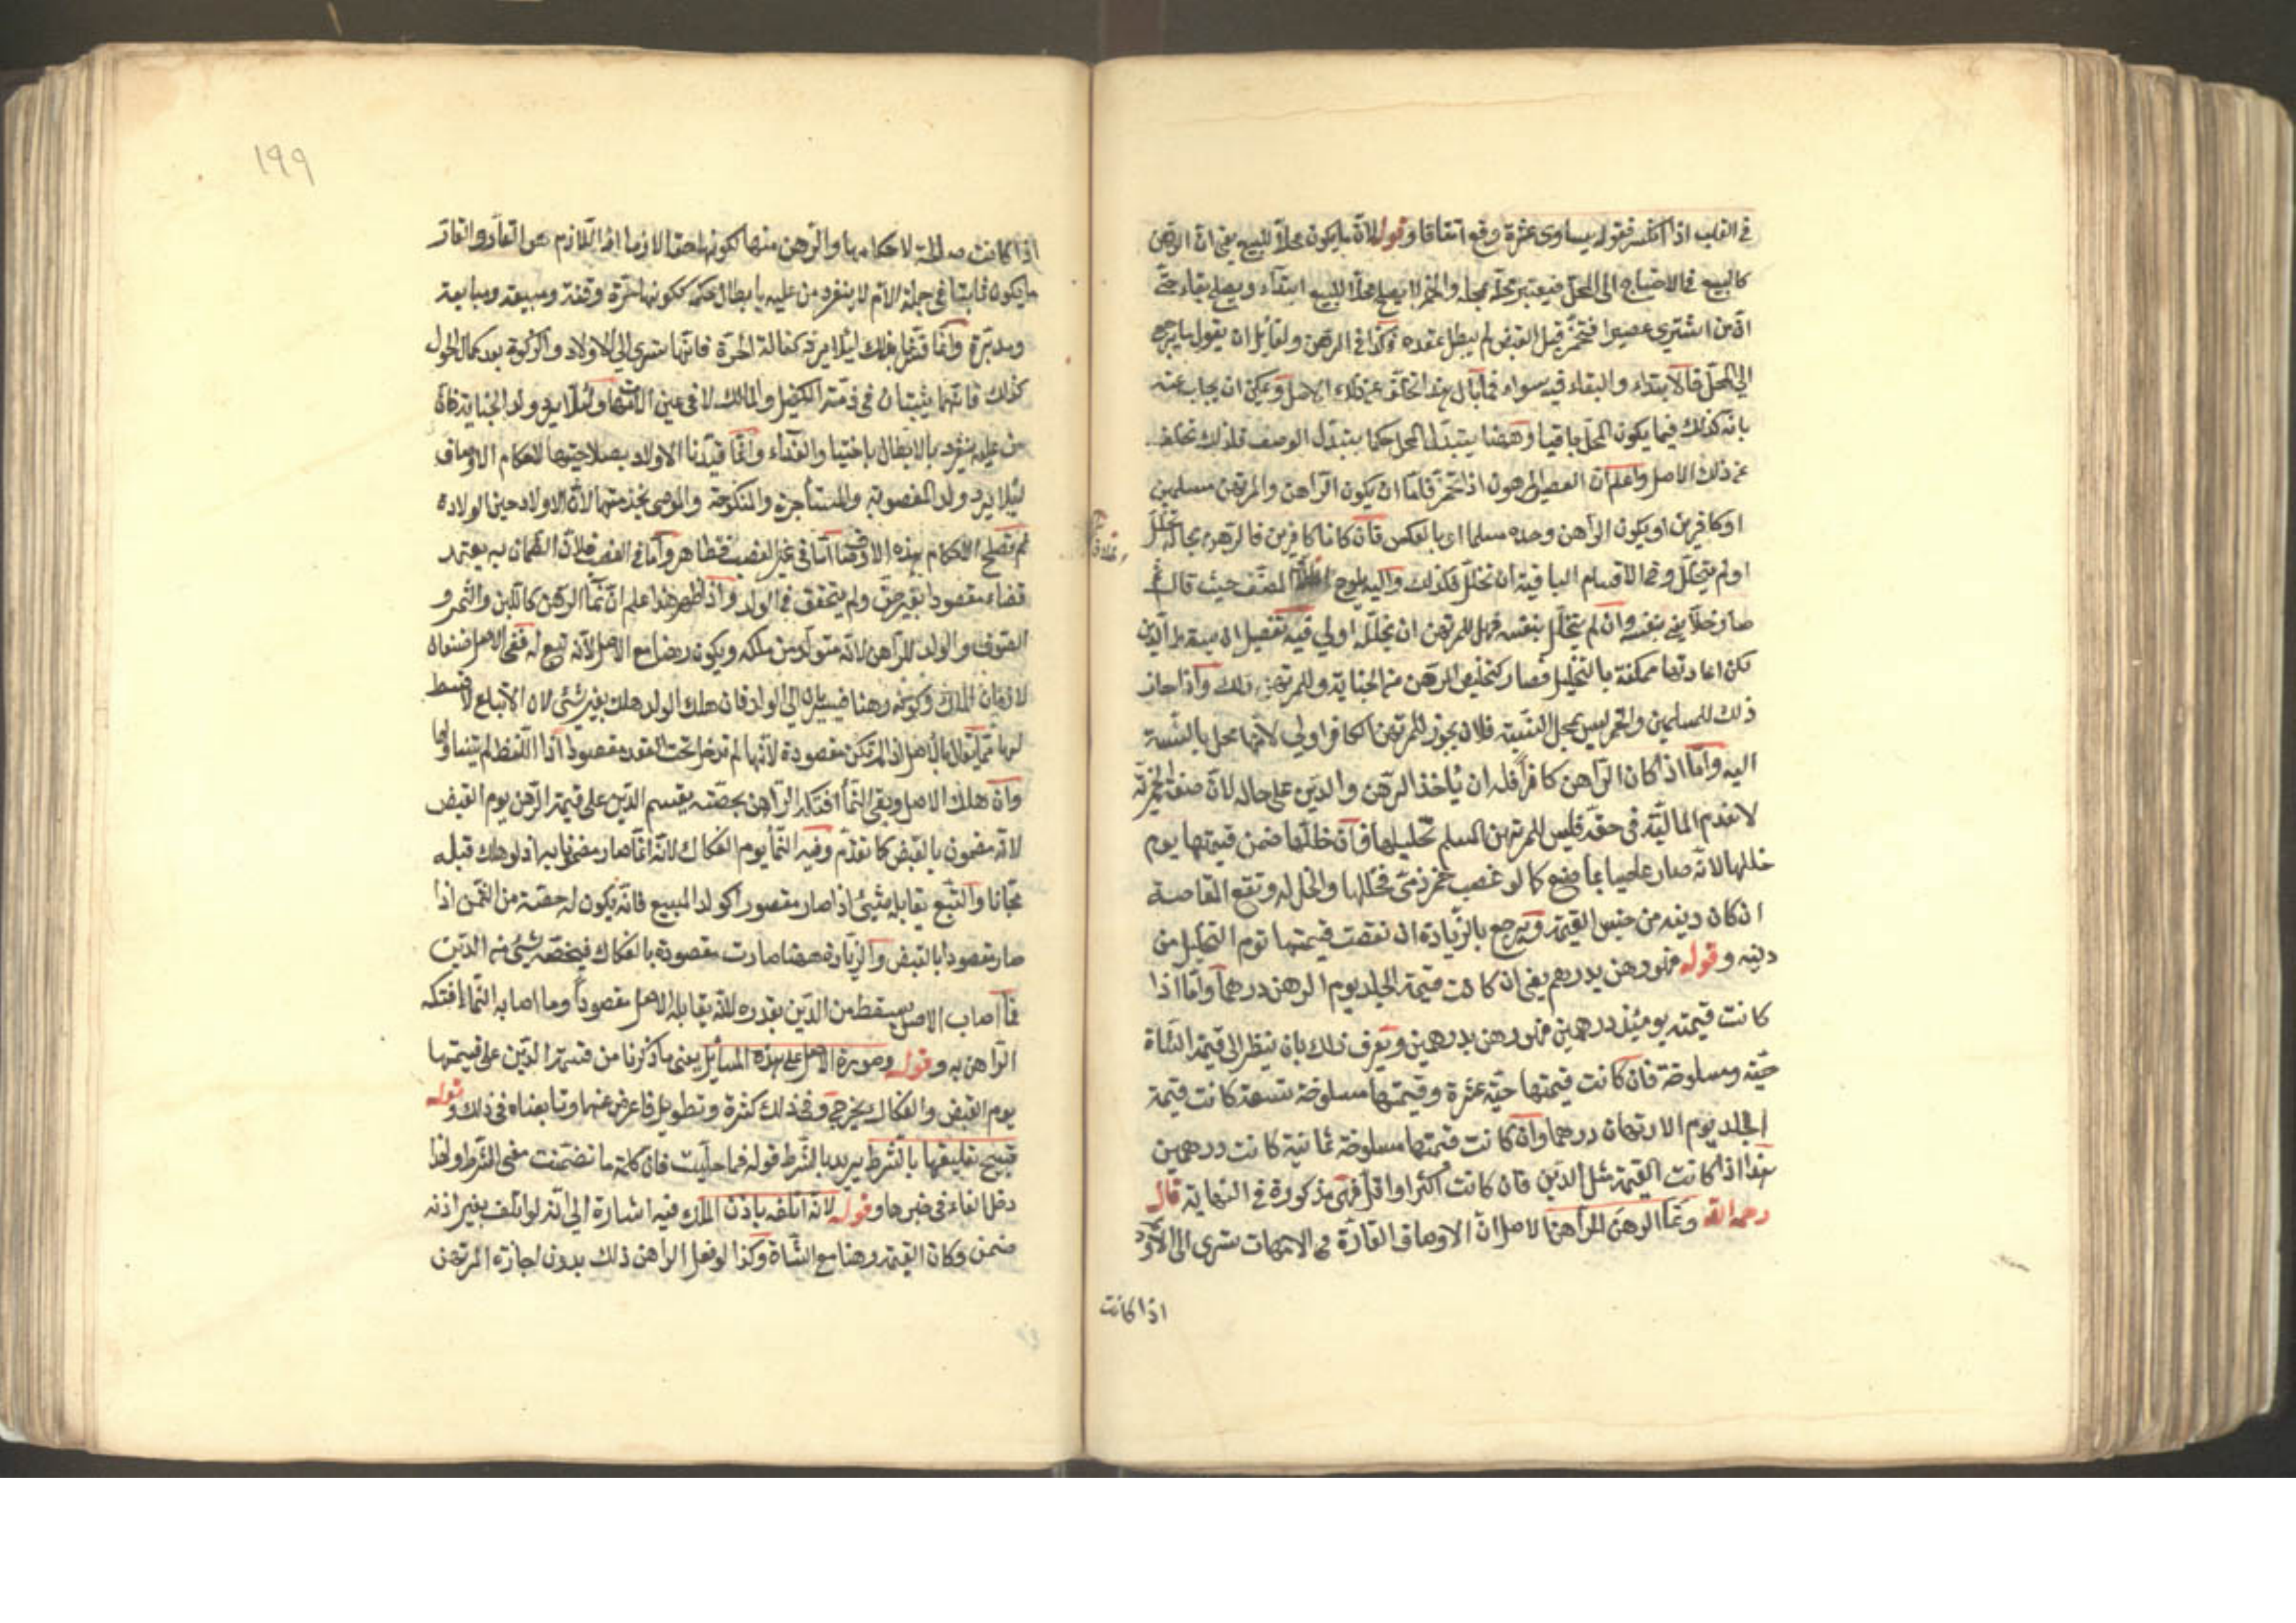 في القلب اذا انكسر فقوله يساوى عشرة وقع اتفاقا وقوله لان ما يكون محلا للبيع يعني ان الرهن
كالبيع في الاحتياج الى المحل فيعتبر محله بمحله والخمر لا يصلح محلا للبيع ابتداء ويصلح بقاء حتى
ان من اشترى عصيرا فتخمر قبل القبض لم يبطل عقده فكذا في الرهن ولقائل ان يقول ما يرجع
الى المحل فالابتداء والبقاء فيه سواء فما بال هذا تخلف عن ذلك الاصل ويمكن ان يجاب عنه
بانه كذلك فيما يكون المحل باقيا وههنا يتبدل المحل حكما بتبدل الوصف فلذلك تخلف
عن ذلك الاصل واعلم ان العصير المرهون اذا تخمر فاما ان يكون الراهن والمرتهن مسلمين
او كافرين او يكون الراهن وحده مسلما او بالعكس فان كانا كافرين فالرهن بحاله تخلل
او لم يتخلل وفي الاقسام الباقية ان تخلل فكذلك واليه يلوح المصنف حيث قال ثم
صار خلا يعني بنفسه وان لم يتخلل بنفسه فهل للمرتهن ان يخلله اولى فيه تفصيل ان
لكن اعادتها ممكنة بالتخليل فصار كتخليص الرهن من الجناية وللمرتهن ذلك واذا جاز
ذلك للمسلمين والخمر ليس بمحل النسبة فلان يجوز للمرتهن الكافر اولى لانها محل بالنسبة
اليه واما اذا كان الراهن كافرا فله ان يأخذ الرهن والدين على حاله لان صفة الخمرية
لا تعدم المالية في حقه فليس للمرتهن المسلم تخليلها فان خللها ضمن قيمتها يوم
خللها لانه صار غاصبا بما صنع كما لو غصب خمر ذمي فخللها والخل له وتقع المقاصة
ان كان دينه من جنس القيمة ويرجع بالزيادة ان نقصت قيمتها يوم التخليل من
دينه وقوله فهو رهن بدرهم يعني ان كانت قيمة الجلد يوم الرهن درهما واما اذا
كانت قيمته يومئذ درهمين فهو رهن بدرهمين ويعرف ذلك بان ينظر الى قيمة الشاة
حية ومسلوخة فان كانت قيمتها حية عشرة وقيمتها مسلوخة تسعة كانت قيمة
الجلد يوم الارتهان درهما وان كانت قيمتها مسلوخة ثمانية كانت درهمين
هذا اذا كانت القيمة مثل الدين فان كانت اكثر او اقل فهي مذكورة في النهاية قال
رحمه الله ونماء الرهن للراهن الاصل ان الاوصاف القارة في الامهات تسرى الى الاولاد
اذا كانت
١٩٩
اذا كانت صالحة لاحكامها والرهن منها لكونها حقا لازما
ما يكون ثابتا في جملة الام لا ينفرد من عليه بابطال حكمه ككونها حرة وقنة ومبيعة ومبايعة
ومدبرة وانما قيدنا بذلك ليلا يرد كفالة الحرة فانها تسرى الى الاولاد والزكوة بعد كمال الحول
كذلك فانهما يثبتان في ذمة الكفيل والمالك لا في عين وليلا يرد ولد الجناية فان
من عليه ينفرد بالابطال باختيار الفداء وانما قيدنا الاولاد بصلاحيتها لاحكام الاوصاف
ليلا يرد ولد المغصوبة والمستأجرة والمنكوحة والموصى بخدمتها لان الاولاد حين الولادة
لم تصلح لاحكام هذه الاوصاف اما في غير الغصب فظاهر واما في الغصب فلان الضمان به يعتمد
قضاء مقصودا بغير حق ولم يتحقق في الولد واذا ظهر هذا علم ان نماء الرهن كاللبن والثمر و
الصوف والولد للراهن لانه متولد من ملكه ويكون رهنا مع الاصل لانه تبع له ففي الاصل صفتان
لازمتان الملك وكونه رهنا فيسريان الى الولد فان هلك الولد هلك بغير شئ لان الاتباع لا قسط
لها مما يقابل بالاصل اذا لم تكن مقصودة لانها لم تدخل تحت العقد مقصودا اذ اللفظ لم يتناولها
وان هلك الاصل وبقي النماء افتكه الراهن بحصته يقسم الدين على قيمة الرهن يوم القبض
لانه مضمون بالقبض كما تقدم وقيمة النماء يوم الفكاك لانه انما صار مضمونا به اذ لو هلك قبله
مجانا والتبع يقابله شئ اذا صار مقصودا كولد المبيع فانه يكون له حصة من الثمن اذا
صار مقصودا بالقبض والزيادة ههنا صارت مقصودة بالفكاك فيخصه شئ من الدين
فما اصاب الاصل يسقط من الدين بقدره لانه يقابله الاصل مقصودا وما اصابه النماء افتكه
الراهن به وقوله وصورة الاصل على هذه المسائل يعني ما ذكرنا من قسمة الدين على قيمتها
يوم القبض والفكاك يخرج وفي ذلك كثرة وتطويل فاعرض عنها وتابعناه في ذلك وقوله
فيصح تعليقها بالشرط يريد بالشرط قوله فما حلبت فان كلمة ما تضمنت معنى الشرط ولهذا
دخل الفاء في خبرها وقوله لانه اتلفه باذن المالك فيه اشارة الى انه لو اتلف بغير اذنه
ضمن وكان القيمة رهنا مع الشاة وكذا لو فعل الراهن ذلك بدون اجازة المرتهن